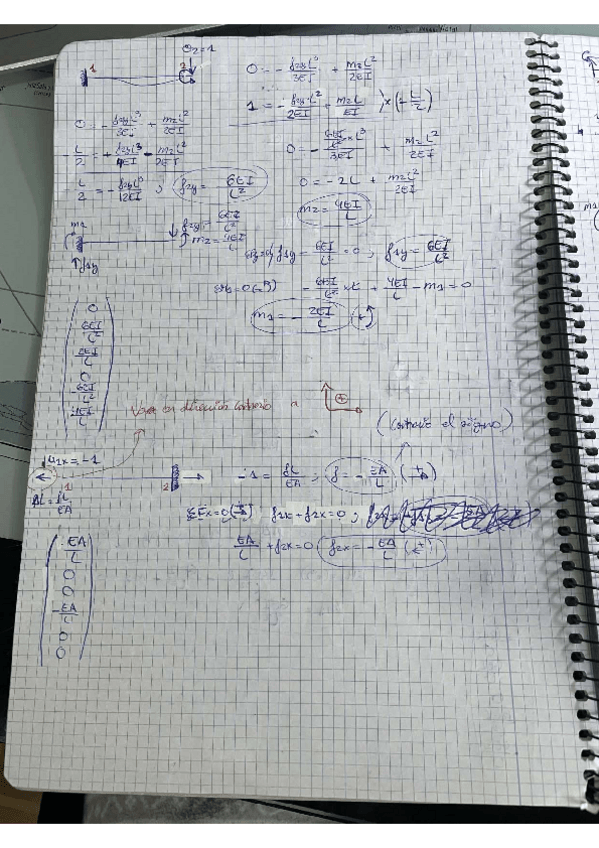 1 2 θ₂=1
0 = - f2yL³/3EI + m2L²/2EI
1 = - f2yL²/2EI + m2L/EI ) x (-L/2)
0 = - f2yL³/3EI + m2L²/2EI
L/2 = + f2yL³/4EI - m2L²/2EI
0 = - 6EI/L² x L³/3EI + m2L²/2EI
L/2 = - f2yL³/12EI ; f2y = - 6EI/L²
0 = -2L + m2L²/2EI
m2 = 4EI/L
m1
f2y = 6EI/L²
m2 = 4EI/L
f1y
f1y - 6EI/L² = 0 ; f1y = 6EI/L²
- 6EI/L² x L + 4EI/L - m1 = 0
m1 = - 2EI/L (+)
0
6EI/L²
2EI/L
0
-6EI/L²
4EI/L
Vaya en dirección contrario a
(contrario el signo)
u1x = -1
1 2
ΔL = fL/EA
-1 = fL/EA ; f = - EA/L (+→)
ΣFx = 0 (+→) f1x + f2x = 0 ;
EA/L + f2x = 0 f2x = - EA/L (+)
EA/L
0
0
-EA/L
0
0